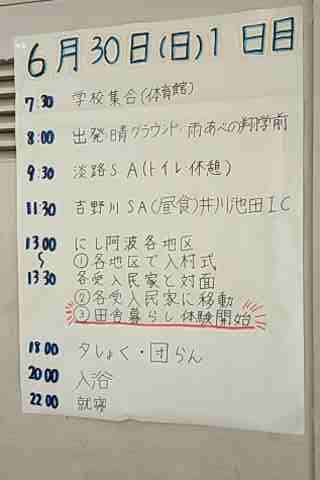 6月30日(日)1日目
7:30 学校集合(体育館)
8:00 出発 晴グラウンド・雨あべの翔学前
9:30 淡路SA(トイレ休憩)
11:30 吉野川SA(昼食)井川池田IC
13:00 にし阿波各地区
〜 ①各地区で入村式
13:30 各受入民家と対面
②各受入民家に移動
③田舎暮らし体験開始
18:00 夕しょく・団らん
20:00 入浴
22:00 就寝